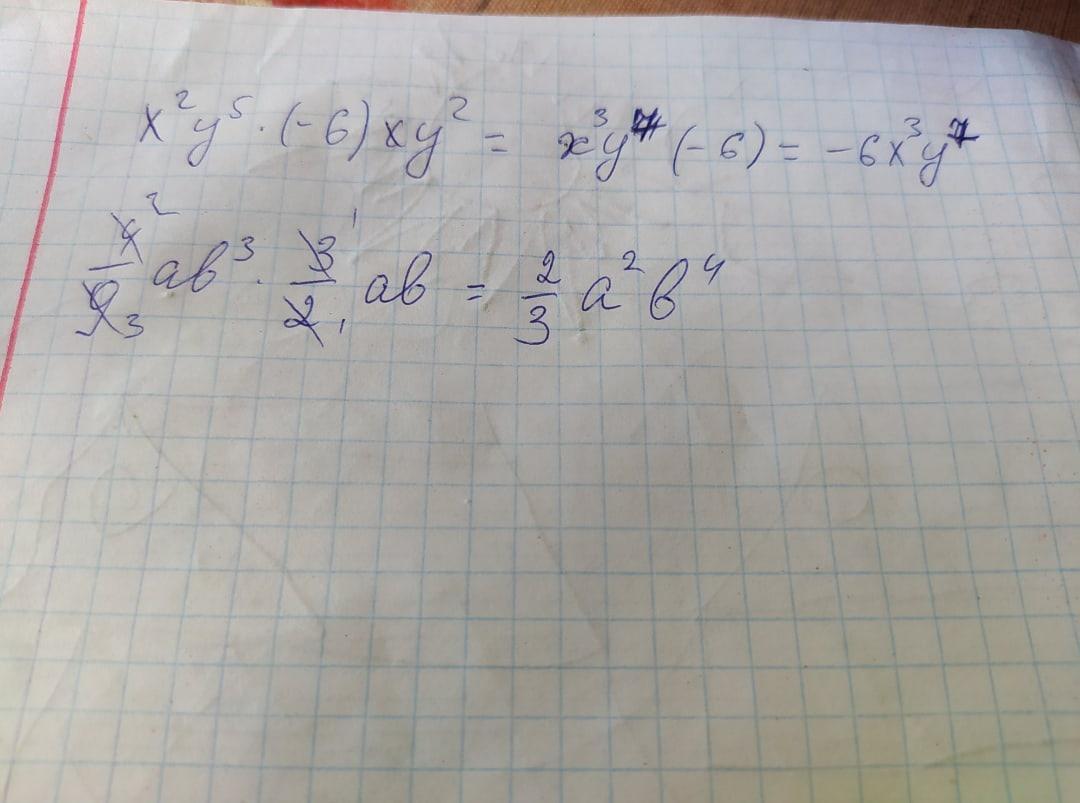 x²y⁵·(-6)xy² = x³y⁷(-6) = -6x³y⁷
4/9 2 3 ab³ · 3/2 1 1 ab = 2/3 a²b⁴